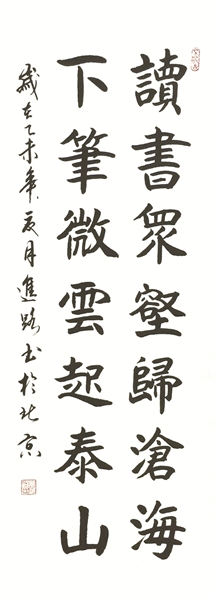 讀書眾壑歸滄海
下筆微雲起泰山
歲在乙未年夏月進路书於北京